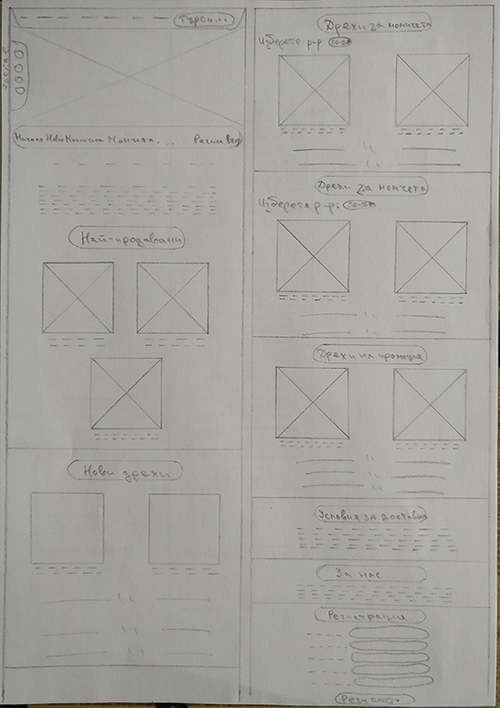 Търси...
Начало Ново Момичета Момчета... Регист Вход
Най-продавани
Нови дрехи
Дрехи за момичета
Изберете р-р
Дрехи за момчета
Изберете р-р:
Дрехи на промоция
Условия за доставка
За нас
Регистрация